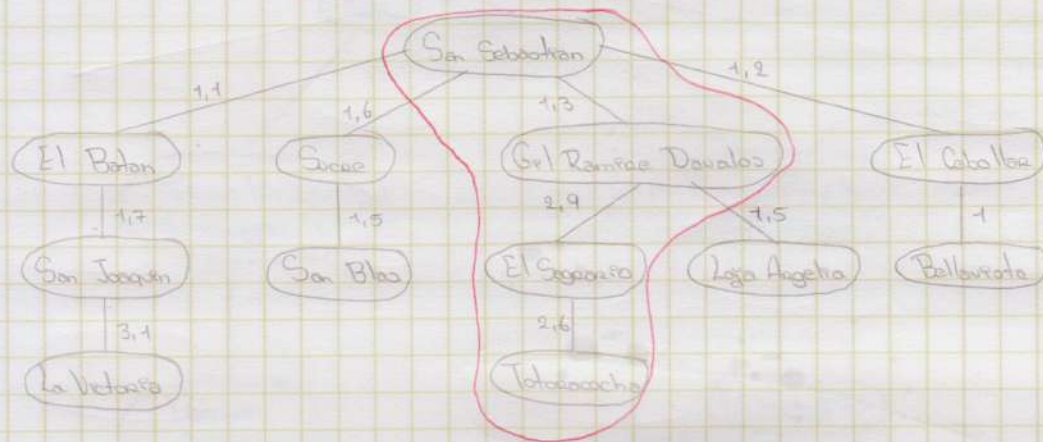 San Sebastian
1,1
1,6
1,3
1,2
El Batan
Sucre
Gil Ramire Davalos
El Caballoe
1,7
1,5
2,9
1,5
1
San Joaquin
San Blas
El Sagrario
Loja Argelia
Bellavista
3,1
2,6
La Victoria
Totoracocha